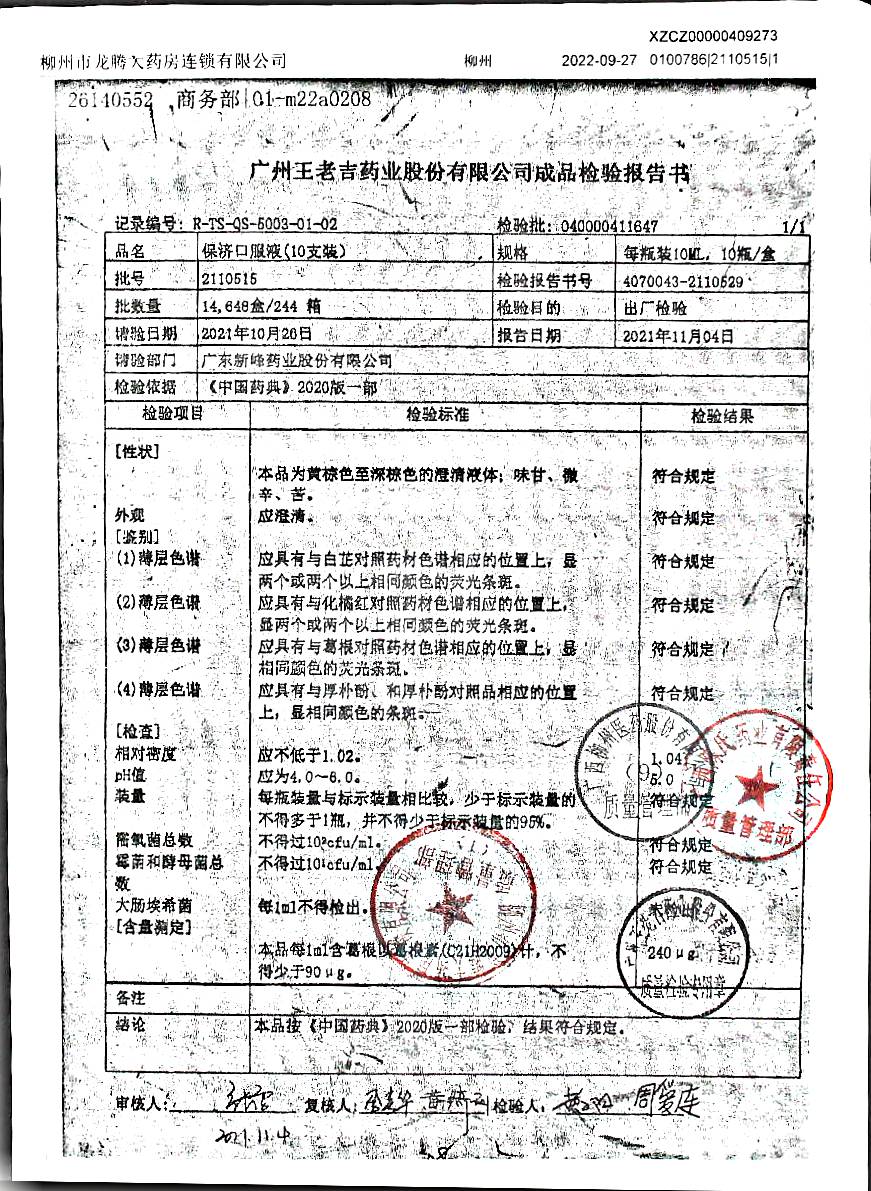 XZCZ00000409273
柳州市龙腾大药房连锁有限公司 柳州 2022-09-27 0100786|2110515|1
26140552 商务部 01-m22a0208
广州王老吉药业股份有限公司成品检验报告书
记录编号: R-TS-QS-5003-01-02 检验批: 040000411647 1/1
品名 保济口服液(10支装) 规格 每瓶装10ML, 10瓶/盒
批号 2110515 检验报告书号 4070043-2110529
批数量 14,648盒/244 箱 检验目的 出厂检验
请验日期 2021年10月26日 报告日期 2021年11月04日
请验部门 广东新峰药业股份有限公司
检验依据 《中国药典》2020版一部
检验项目 检验标准 检验结果
[性状]
本品为黄棕色至深棕色的澄清液体;味甘、微 符合规定
辛、苦。
外观 应澄清。 符合规定
[鉴别]
(1)薄层色谱 应具有与白芷对照药材色谱相应的位置上,显 符合规定
两个或两个以上相同颜色的荧光条斑。
(2)薄层色谱 应具有与化橘红对照药材色谱相应的位置上, 符合规定
显两个或两个以上相同颜色的荧光条斑。
(3)薄层色谱 应具有与葛根对照药材色谱相应的位置上,显 符合规定
相同颜色的荧光条斑。
(4)薄层色谱 应具有与厚朴酚、和厚朴酚对照品相应的位置 符合规定
上,显相同颜色的条斑。
[检查]
相对密度 应不低于1.02。 1.04
pH值 应为4.0~6.0。 5.0
装量 每瓶装量与标示装量相比较,少于标示装量的 符合规定
不得多于1瓶,并不得少于标示装量的95%。
需氧菌总数 不得过10²cfu/ml。 符合规定
霉菌和酵母菌总 不得过10¹cfu/ml。 符合规定
数
大肠埃希菌 每1ml不得检出。
[含量测定]
本品每1ml含葛根以葛根素(C21H20O9)计,不 240μg
得少于90μg。
质量管理部
质量管理部
质量检验专用章
备注
结论 本品按《中国药典》2020版一部检验,结果符合规定。
审核人: 复核人: 检验人: 周爱连
2021.11.4